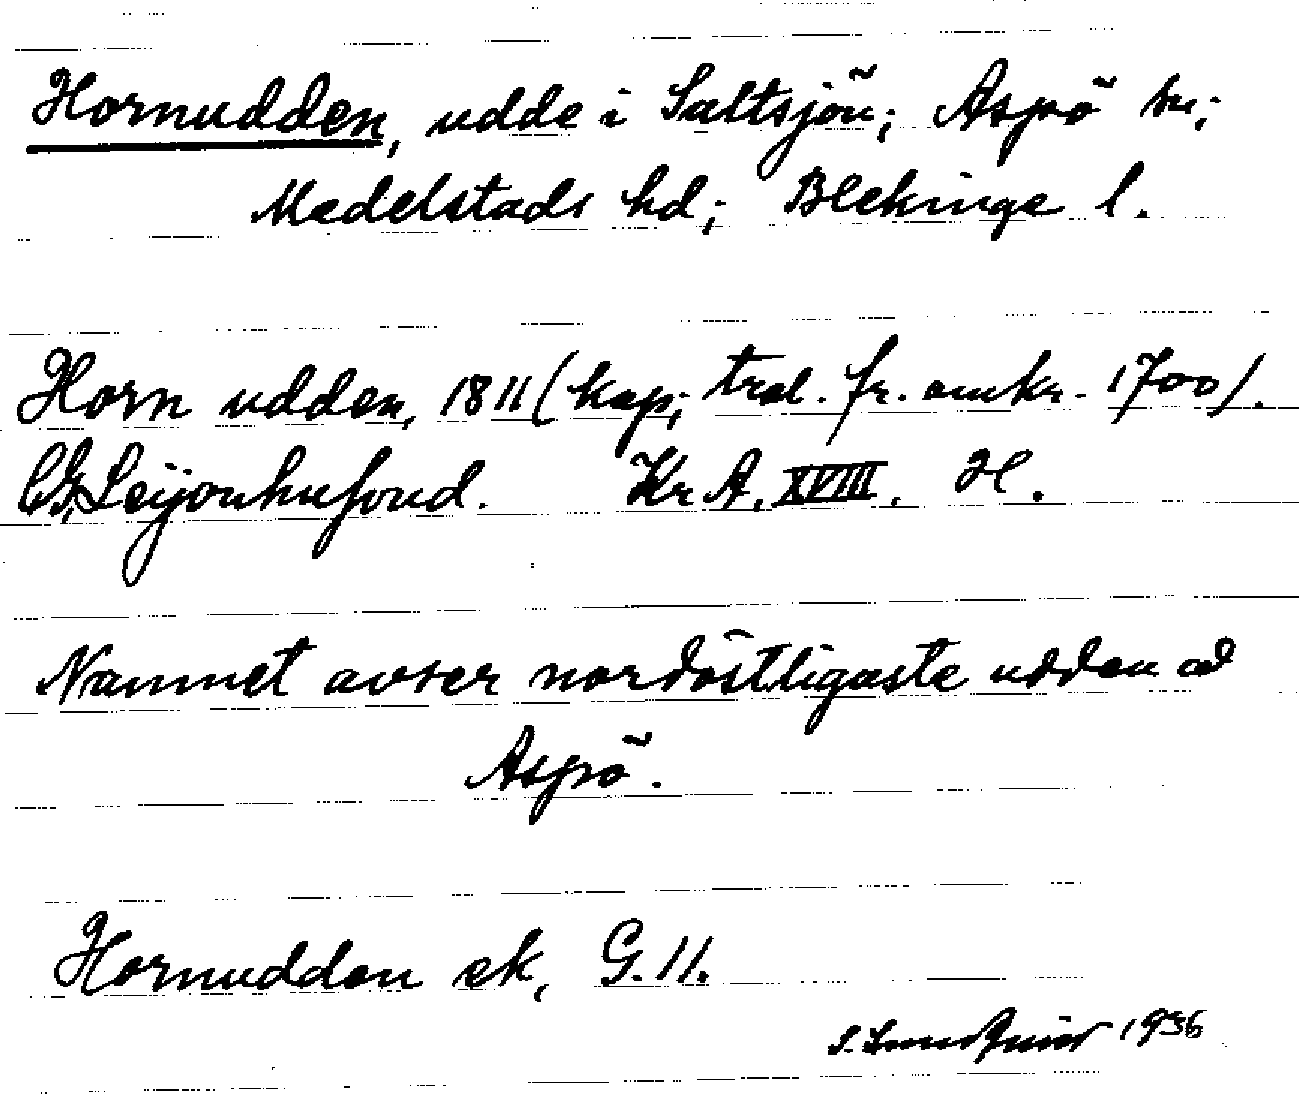 Hornudden, udde i Saltsjön; Aspö sn;
Medelstads hd; Blekinge l.
Horn udden, 1811 (kop; trol. fr. omkr. 1700).
CG, Leijonhufvud. Kr A. XVIII. H.
Namnet avser nordöstligaste udden av
Aspö.
Hornudden ek, G. 11.
S. Lundquist 1936